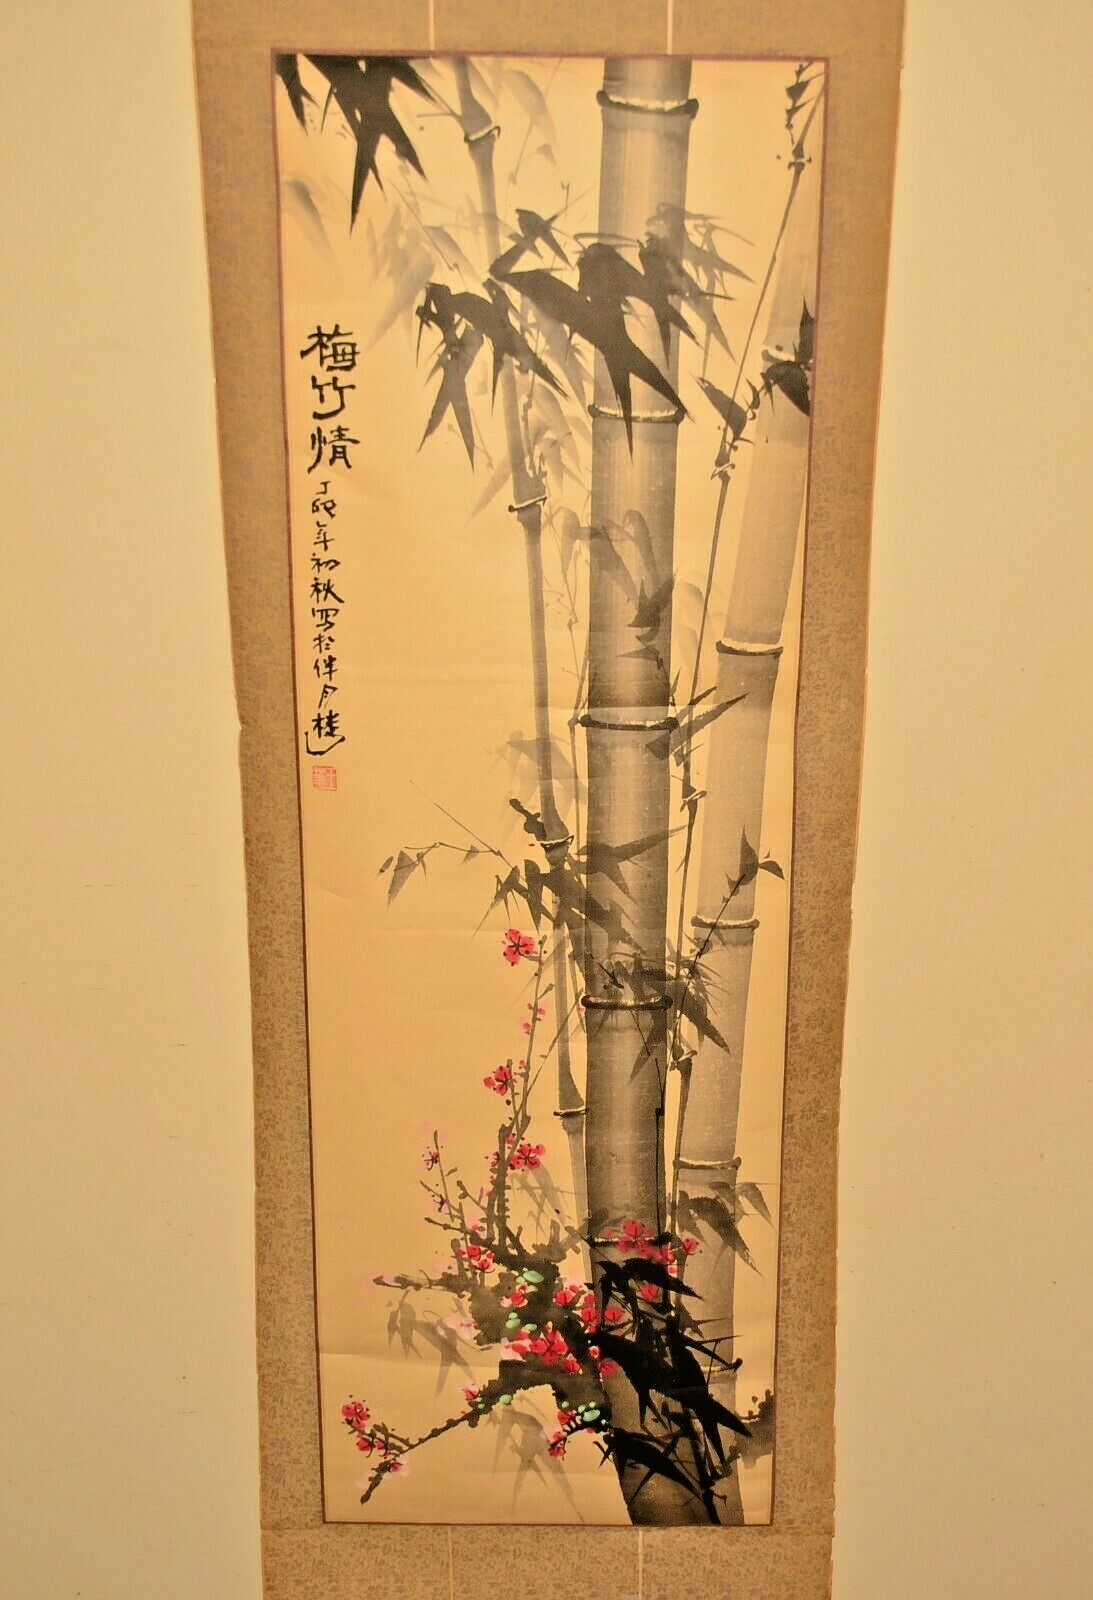 梅竹情
丁卯年初秋写於伴月楼